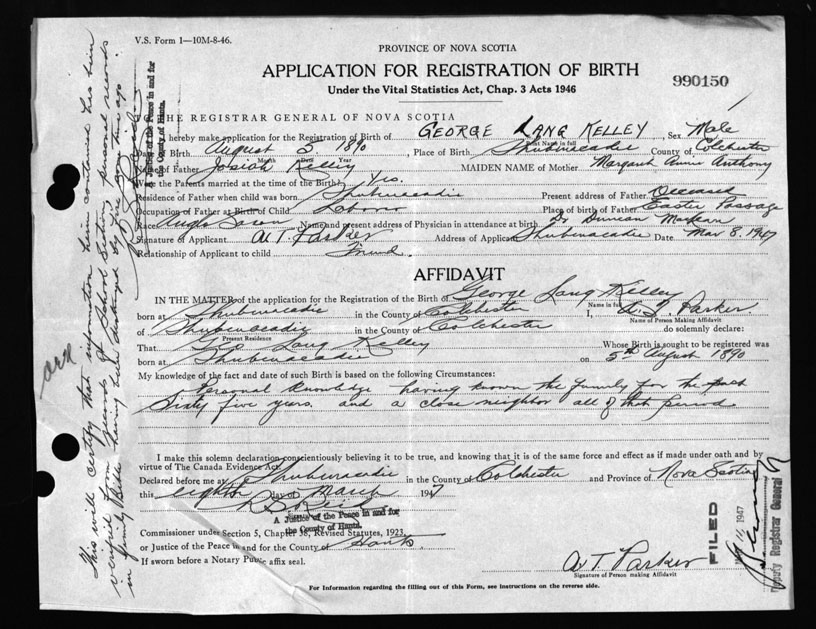 V.S. Form 1—10M-8-46.
PROVINCE OF NOVA SCOTIA
APPLICATION FOR REGISTRATION OF BIRTH
Under the Vital Statistics Act, Chap. 3 Acts 1946
990150
THE REGISTRAR GENERAL OF NOVA SCOTIA
I hereby make application for the Registration of Birth of GEORGE LANG KELLEY, Sex Male
Print Name in full
Date of Birth August 5 1890 Place of Birth Shubenacadie County of Colchester
Month Date Year
Name of Father Josiah Kelley MAIDEN NAME of Mother Margaret Annie Anthony
Were the Parents married at the time of the Birth? Yes.
Residence of Father when child was born Shubenacadie Present address of Father Deceased
Occupation of Father at Birth of Child Place of birth of Father Easter Passage
Race Anglo Saxon Name and present address of Physician in attendance at birth Dr Duncan McKean
Signature of Applicant A. T. Parker Address of Applicant Shubenacadie Date Mar 8. 1947
Relationship of Applicant to child Friend
AFFIDAVIT
IN THE MATTER of the application for the Registration of the Birth of George Lang Kelley
Name in full
born at Shubenacadie in the County of Colchester I, A. T. Parker.
Name of Person Making Affidavit
of Shubenacadie in the County of Colchester do solemnly declare:
Present Residence
That Geo Lang Kelley Whose Birth is sought to be registered was
born at Shubenacadie on 5th August 1890
My knowledge of the fact and date of such Birth is based on the following Circumstances:
Personal Knowledge having known the family for the past
Sixty five years. and a close neighbor all of that period.
I make this solemn declaration conscientiously believing it to be true, and knowing that it is of the same force and effect as if made under oath and by
virtue of The Canada Evidence Act.
Declared before me at Shubenacadie in the County of Colchester and Province of Nova Scotia
this eighth day of March 1947
A Justice of the Peace in and for
the County of Hants.
Commissioner under Section 5, Chapter 38, Revised Statutes, 1923,
or Justice of the Peace in and for the County of Hants
If sworn before a Notary Public affix seal.
A. T. Parker
Signature of Person making Affidavit
For Information regarding the filling out of this Form, see instructions on the reverse side.
This will certify that information herein contained has been
verified from records of School Section, personal records
in family Bible having been destroyed by fire some time ago.
A Justice of the Peace in and for
the County of Hants.
FILED
1947
Deputy Registrar General